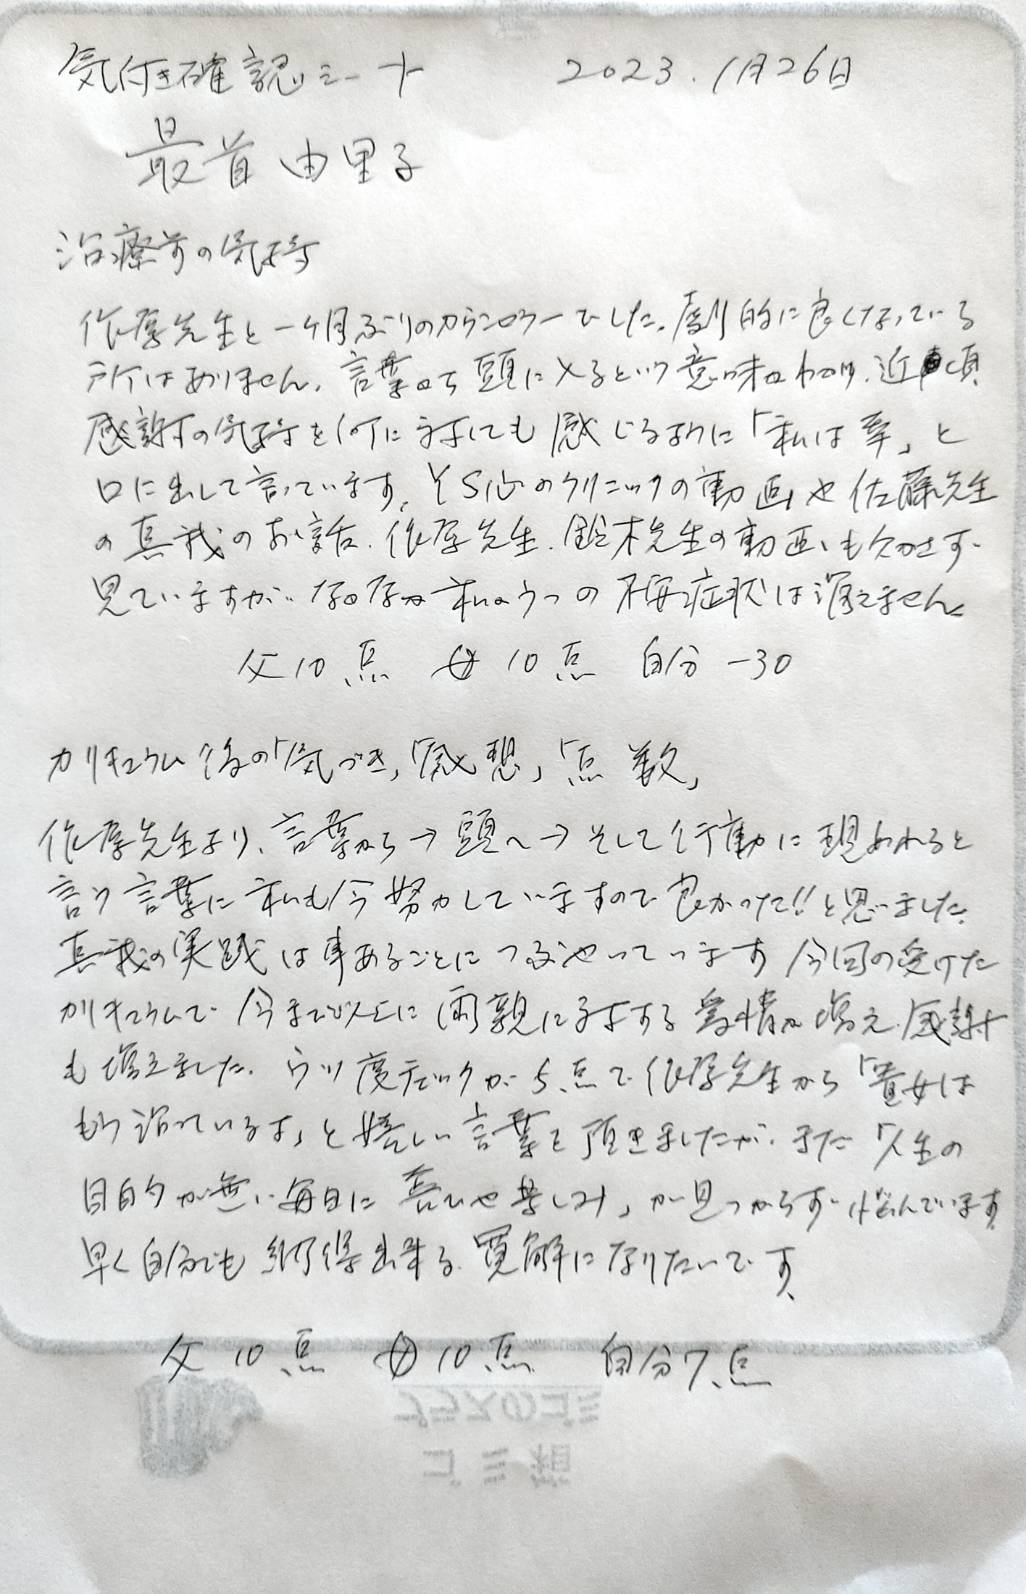 気付き確認シート 2023.1月26日
最首由里子
治療前の気持
作厚先生と一ヶ月ぶりのカウンセラーでした。劇的に良くなっている
所はありません。言葉から頭に入るという意味がわかり、近頃
感謝の気持を何に対しても感じるように「私は幸」と
口に出して言っています。YSこころのクリニックの動画や佐藤先生
の真我のお話、作厚先生、鈴木先生の動画も欠かさず
見ていますが、なかなか私のうつの不安症状は消えません。
父10点 母10点 自分-30
カリキュラム後の「気づき」「感想」「点数」
作厚先生より、言葉から→頭へ→そして行動に現われると
言う言葉に私も今努力していますので良かった!!と思いました。
真我の実践は事あるごとにつぶやいています 今回の受けた
カリキュラムで今まで以上に両親に対する愛情が増え、感謝
も増えました。ウツ度チェックが5点で作厚先生から「貴女は
もう治っているよ」と嬉しい言葉を頂きましたが、まだ「人生の
目的が無い毎日に喜びや楽しみ」が見つからず悩んでいます
早く自分でも納得出来る寛解になりたいです。
父10点 母10点 自分7点
プラスのゴミ
ゴミ箱